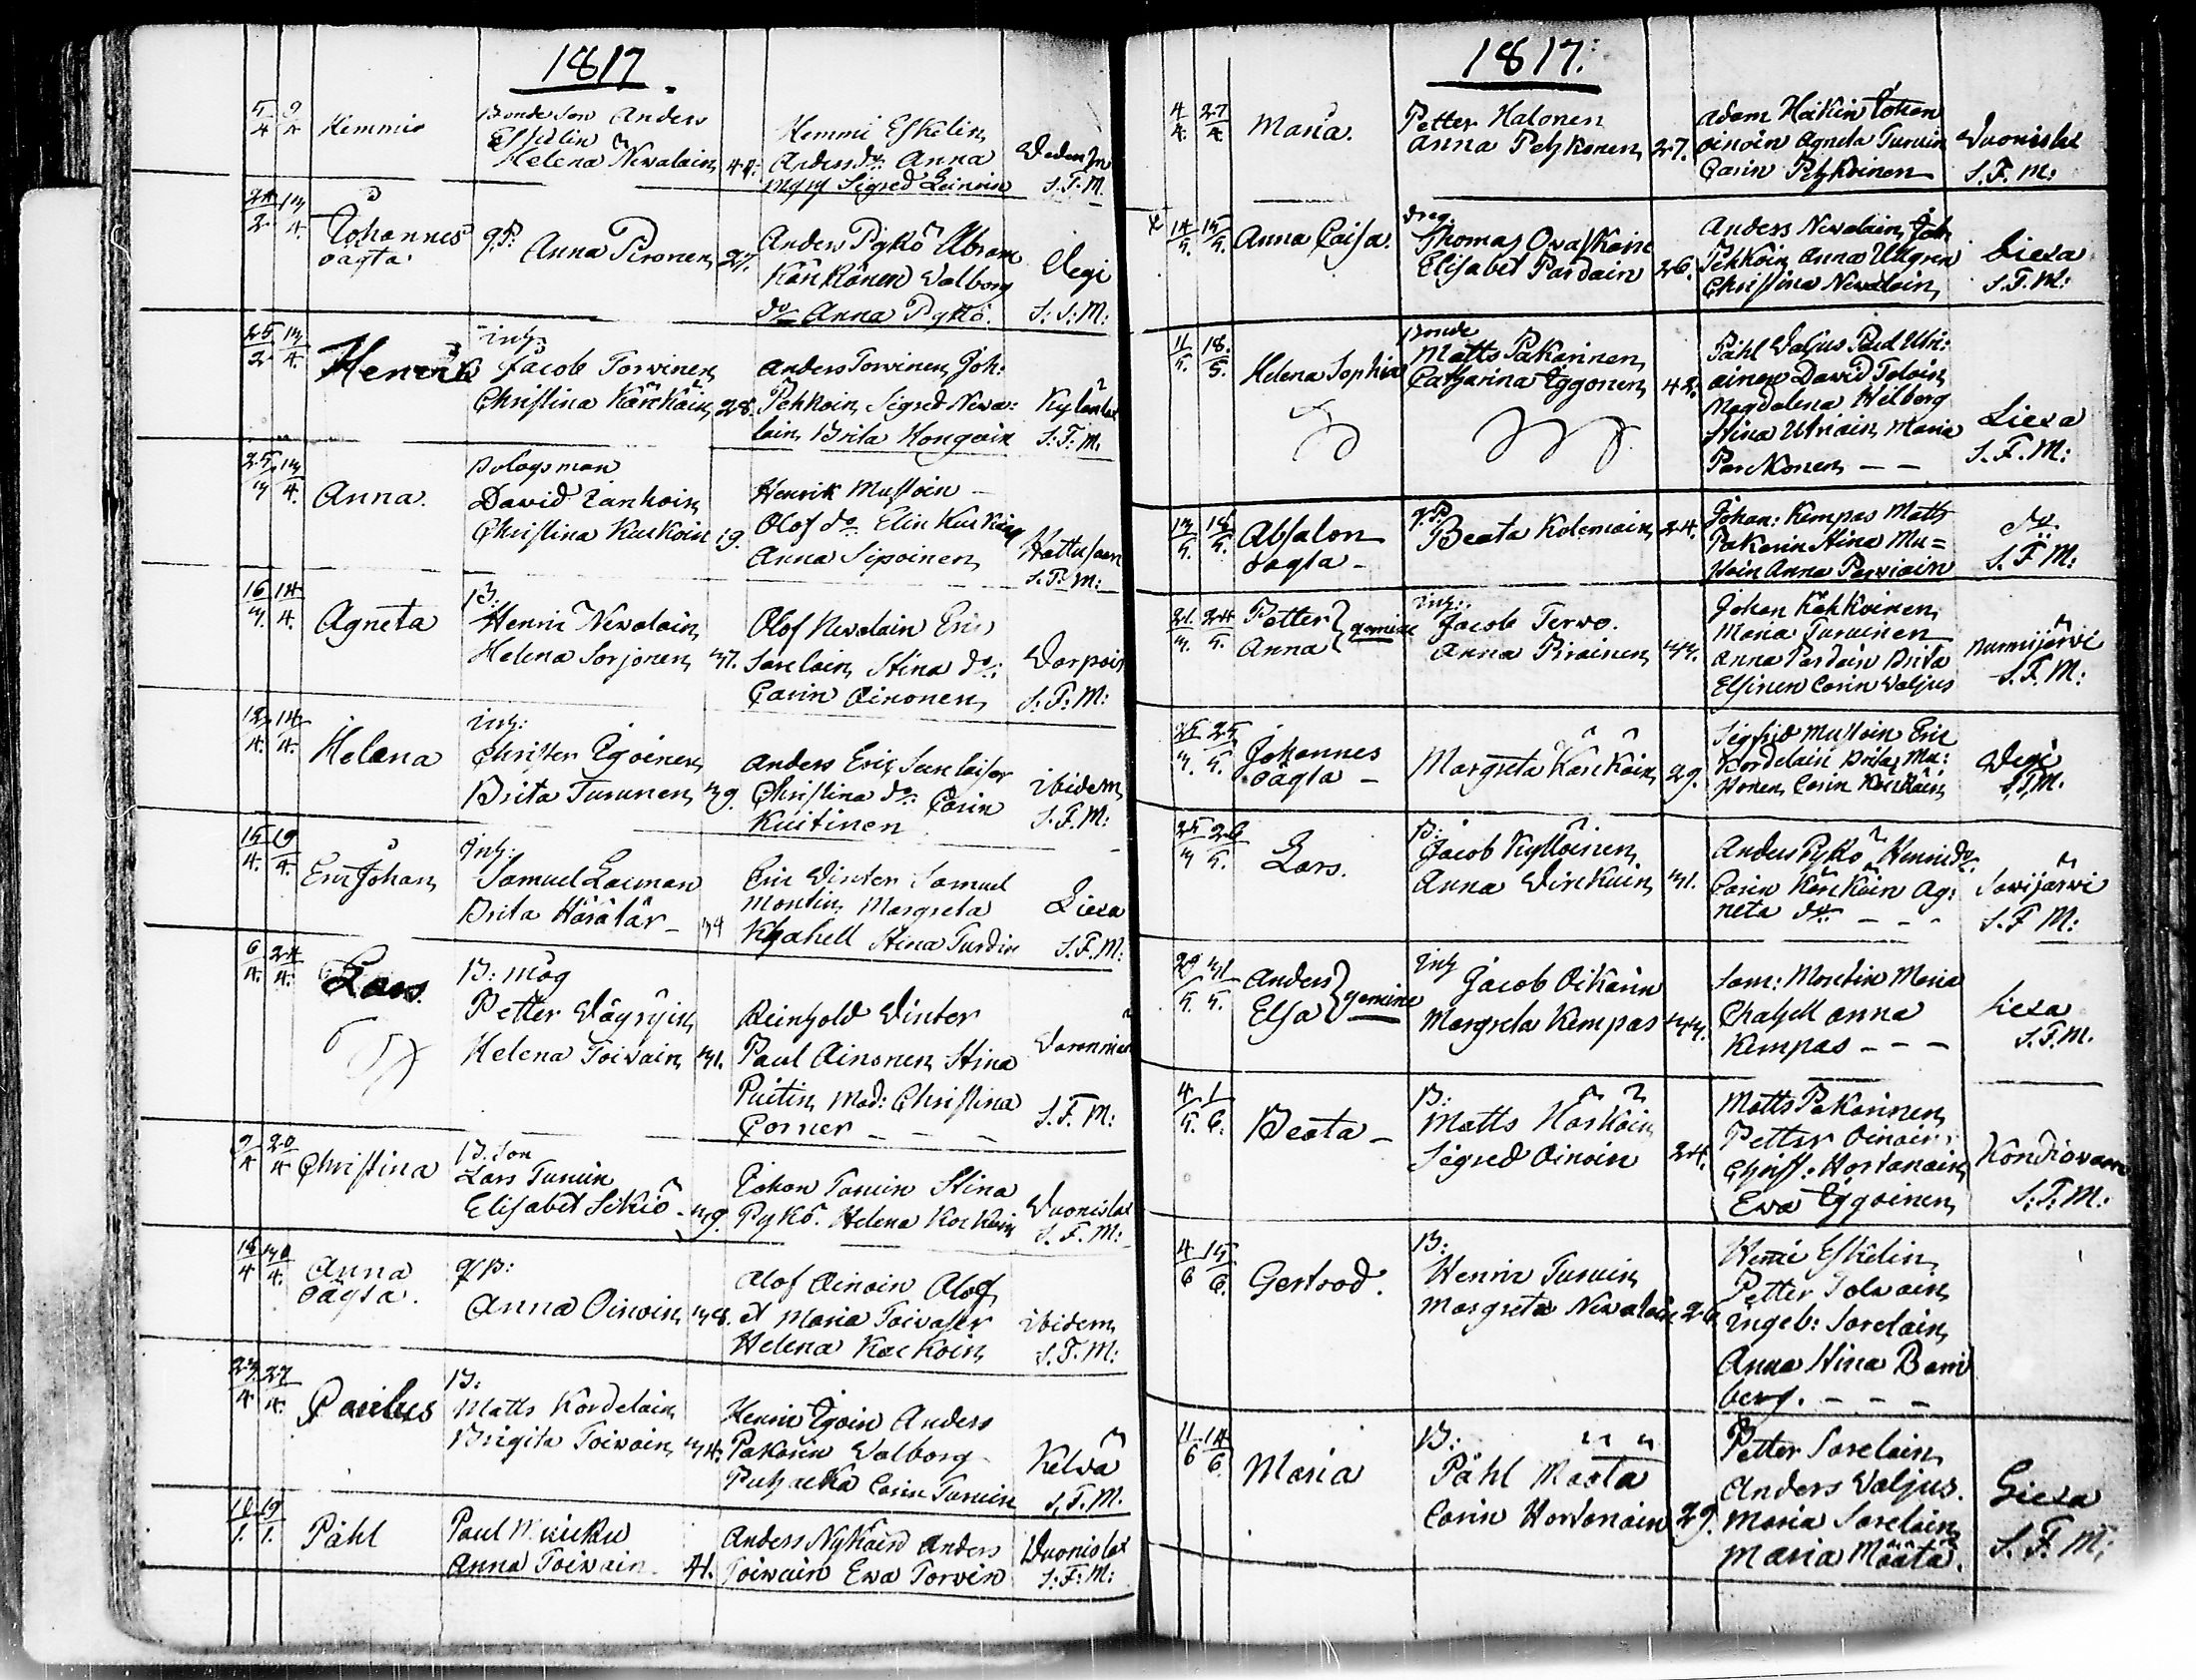 1817
5/4 9/4 Hemmin Bonde Son Anders
Eskelin
Helena Nevalain 44. Hemmi Eskelin
Anders do Anna
Sigred Leinoin
S.F.M.
24/2 13/4 Johannes
oägta. q.P. Anna Pironen 27.
Anders Pykö Abram
Kärkäinen Walborg
do Anna Pykö.
Wegi
S:F:M:
25/2 13/4 Henric inh:
Jacob Torvinen
Christina Kärckäin 28.
Anders Torvinen Joh:
Pehkoin Sigred Neva:
lain Brita Hongoin
Kylanlax
S:F:M.
25/3 13/4 Anna. Bolagsman
David Tanhoin
Christina Kuckoin 19.
Henrik Mustoin
Olof do Elin Kuckoin
Anna Siponinen
Hattusaari
S.F.M:
16/3. 14/4. Agneta B:
Henric Nevalain
Helena Sorjonen 37.
Olof Nevalain Eric
Sarelain Stina do:
Carin Oinonen
Warpois
S.F:M:
12/4. 14/4. Helena inh:
Christer Egoinen
Brita Turunen 39.
Anders Eric
Christina do: Carin
Kuitinen
ibidem
S.F.M:
15/4. 19/4. Eric Johan inh:
Samuel Laurman
Brita Härätär 34
Eric Winter Samuel
Montin Margreta
Kyahell Stina Turdin
Liexa
S.F.M:
6/4. 24/4. Lars B: måg
Petter Väyryin
Helena Toivain 31.
Reinhold Winter
Paul Ainonen Stina
Puitin Mad: Christina
Corner
S.F.M:
9/4 20/4 Christina B. Son
Lars Turuin
Elisabet Sikiö 39.
Johan Turuin Stina
Pykö. Helena Kockoin
Vuonislax
S.F.M:
18/4 30/4. Anna
oägta. q.P:
Anna Oinoin 38.
Olof Oinoin Olof
et Maria Toivatar
Helena Kockoin
ibidem
S.F.M:
23/4 27/4. Paulus B:
Matts Kärdelain
Brigita Toivain 34.
Henric Egoin Anders
Pakarin Walborg
Puhacka Carin Turuin
Kelvä
S.F.M.
10/1. 19/1. Påhl Paul
Anna Toivain 41.
Anders Nykäin Anders
Toivain Eva Torvin
Vuonislax
S:F:M:
1817:
4/4. 27/4 Maria. Petter Halonen
Anna Pehkonen 27.
Adam Heikin Johan
oinoin Agneta Turuin
Carin Pehkoinen
Vuonislax
S.F.M:
14/5. 15/5. Anna Caisa. Drag.
Thomas Ovaskain
Elisabet Pardain 26.
Anders Nevalain Joh
Pehkoin Anna Ullgren
Christina Nevalain
Liexa
S.F.M:
11/5. 18/5. Helena Sophia Bonde
Matts Pakarinen
Catharina Eggonen 42.
Påhl Valjus Paul Utri:
ainen David Toloin
Magdalena Helberg
Stina Utriain Maria
Parckonen
Liexa
S.F.M:
13/5. 18/5. Absalon
oägta q.P:
Beata Kolemain 24.
Johan: Kempas Matts
Pakarin Stina Mu=
stoin Anna Parviain
do.
S.F.M:
21/3. 24/5. Petter
Anna gemine inh:
Jacob Tervo.
Anna Piroinen 33.
Johan Kähkoinen
Maria Turuinen
Anna Pardain Brita
Elsinen Carin Valjus
Nurmijärvi
S.F.M:
21/3. 25/5. Johannes
oägta Margreta Kärckäin 29.
Sigfrid Mustoin Eric
Kärdelain Brita Mu:
stonen Carin Kärckäin
Wegi
S.F.M.
25/3 26/5. Lars. B:
Jacob Kyllöinen
Anna Wirckuin 31.
Anders Pykö Henric do.
Carin Kärckäin Ag:
neta do.
Savijärvi
S.F.M:
29/5. 31/5. Anders
Elsa gemine inh
Jacob Oikarin
Margreta Kempas 33.
Sam: Montin Maria
Chahell Anna
Kempas
Liexa
S.F.M.
4/5. 1/6. Beata B:
Matts Harkoin
Sigred Oinoin 24.
Matts Pakarinen
Petter Oinoin
Christ: Hortanain
Eva Eggoinen
Kondiovaara
S.F.M:
4/6 15/6. Gertrod. B:
Henric Turuin
Margreta Nevalain 26
Henric Eskelin
Petter Tolvain
Ingeb: Sarelain
Anna Stina Bam
berg.
11/6 14/6. Maria B:
Påhl Määtä
Carin Hortanain 29.
Petter Sarelain
Anders Valjus.
Maria Sarelain
Maria Määtä.
Liexa
S.F.M: